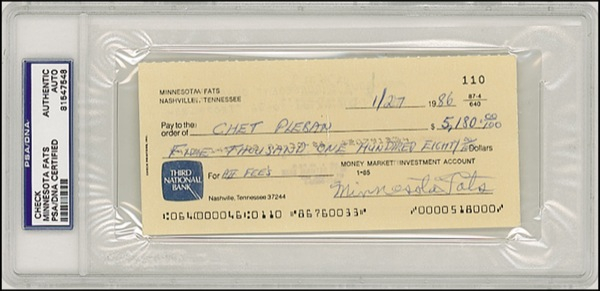 PSA/DNA
CHECK
MINNESOTA FATS
PSA/DNA CERTIFIED
AUTHENTIC
AUTO
81547548
MINNESOTA FATS
NASHVILLE, TENNESSEE
110
1/27 1986
87-4
640
Pay to the order of CHET PLEBAN $ 5,180.00/100
FIVE THOUSAND ONE HUNDRED EIGHTY Dollars
MONEY MARKET/INVESTMENT ACCOUNT
1-65
THIRD
NATIONAL
BANK
For FEE'S
Minnesota Fats
Nashville, Tennessee 37244
⑆064000046⑆0110 ⑈86760033⑈ ⑈0000518000⑈